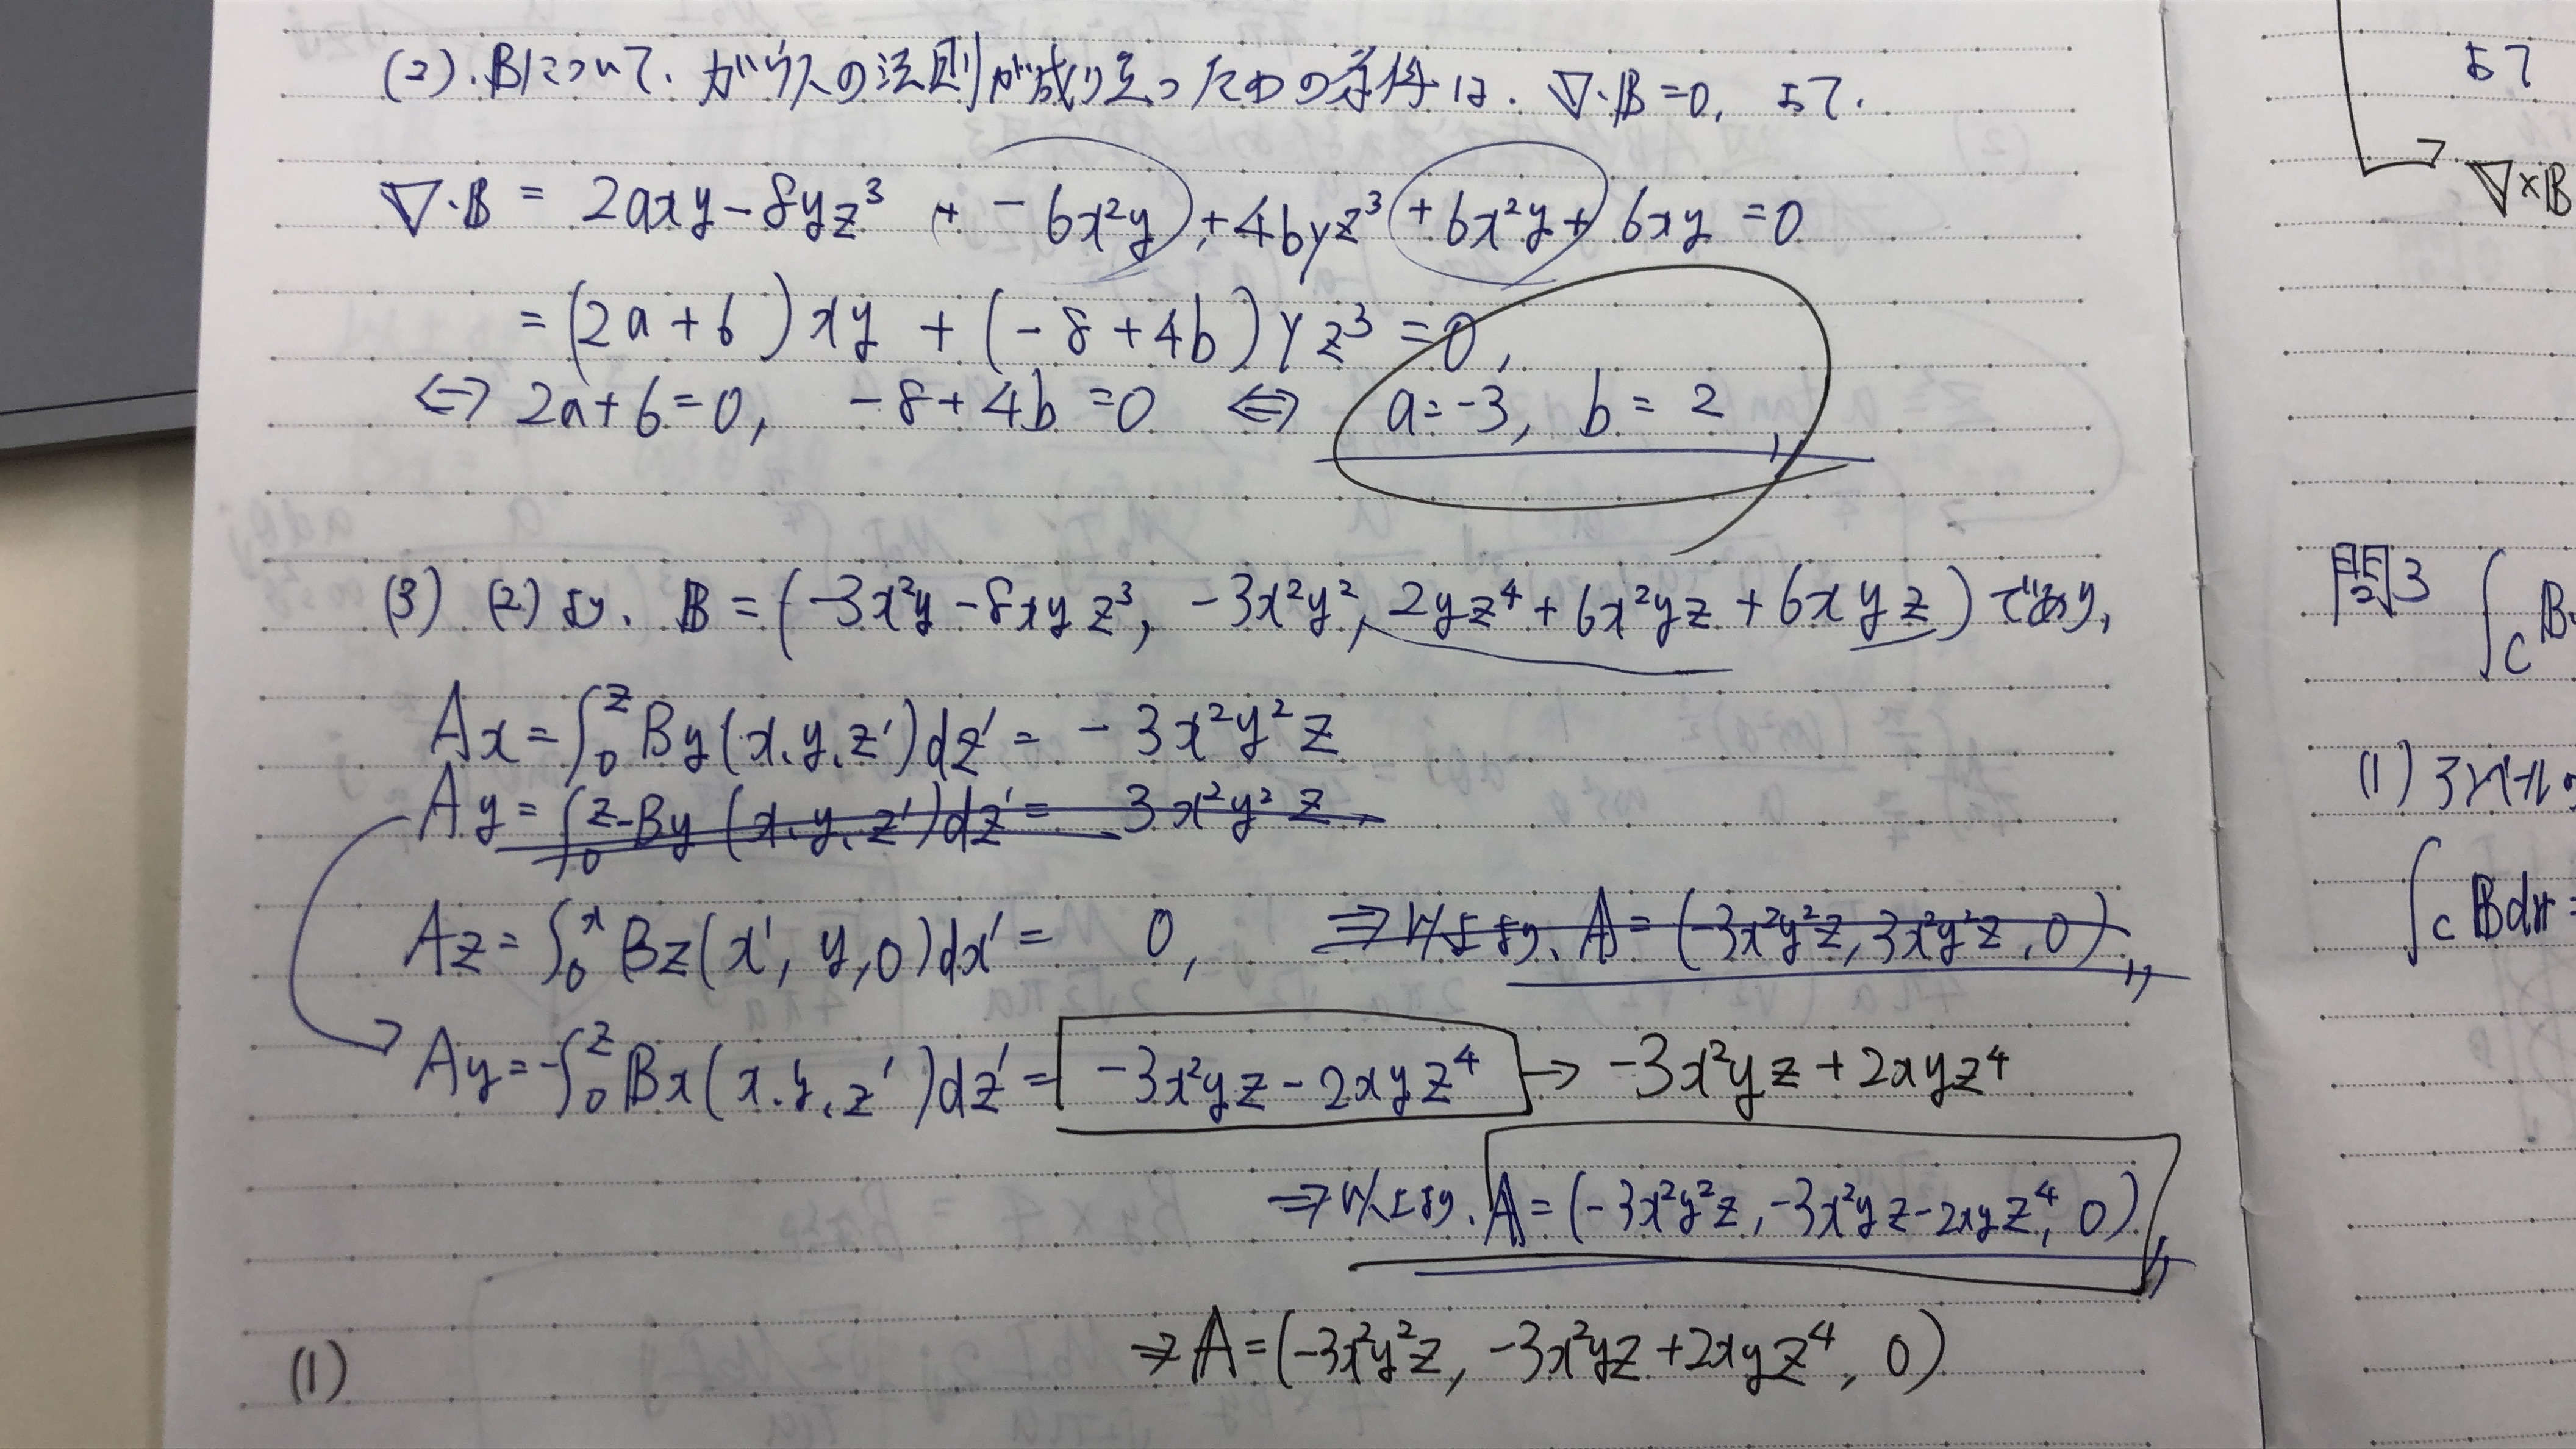 (2). Bについて. ガウスの法則が成り立つための条件は. ∇·B = 0, よって.
∇·B = 2axy - 8yz³ + -6x²y + 4byz³ + 6x²y + 6xy = 0
= (2a + 6) xy + (-8 + 4b) yz³ = 0,
⇔ 2a + 6 = 0, -8 + 4b = 0 ⇔ a = -3, b = 2 ,,
(3) (2)より. B = (-3x²y - 8xyz³, -3x²y², 2yz⁴ + 6x²yz + 6xyz) であり,
Ax = ∫₀ᶻ By(x, y, z')dz' = -3x²y²z
Ay = ∫₀ᶻ -By (x, y, z')dz' = 3x²y²z,
Az = ∫₀ˣ Bz(x', y, 0)dx' = 0, ⇒ 以上より. A = (-3x²y²z, 3x²y²z, 0) ,,
Ay = -∫₀ᶻ Bx(x, y, z')dz' = -3x²yz - 2xyz⁴ → -3x²yz + 2xyz⁴
⇒ 以上より. A = (-3x²y²z, -3x²yz - 2xyz⁴, 0) ,,
(1) ⇒ A = (-3x²y²z, -3x²yz + 2xyz⁴, 0)
よて
∇×B
問3 ∫c B
(1)
∫c Bdr =